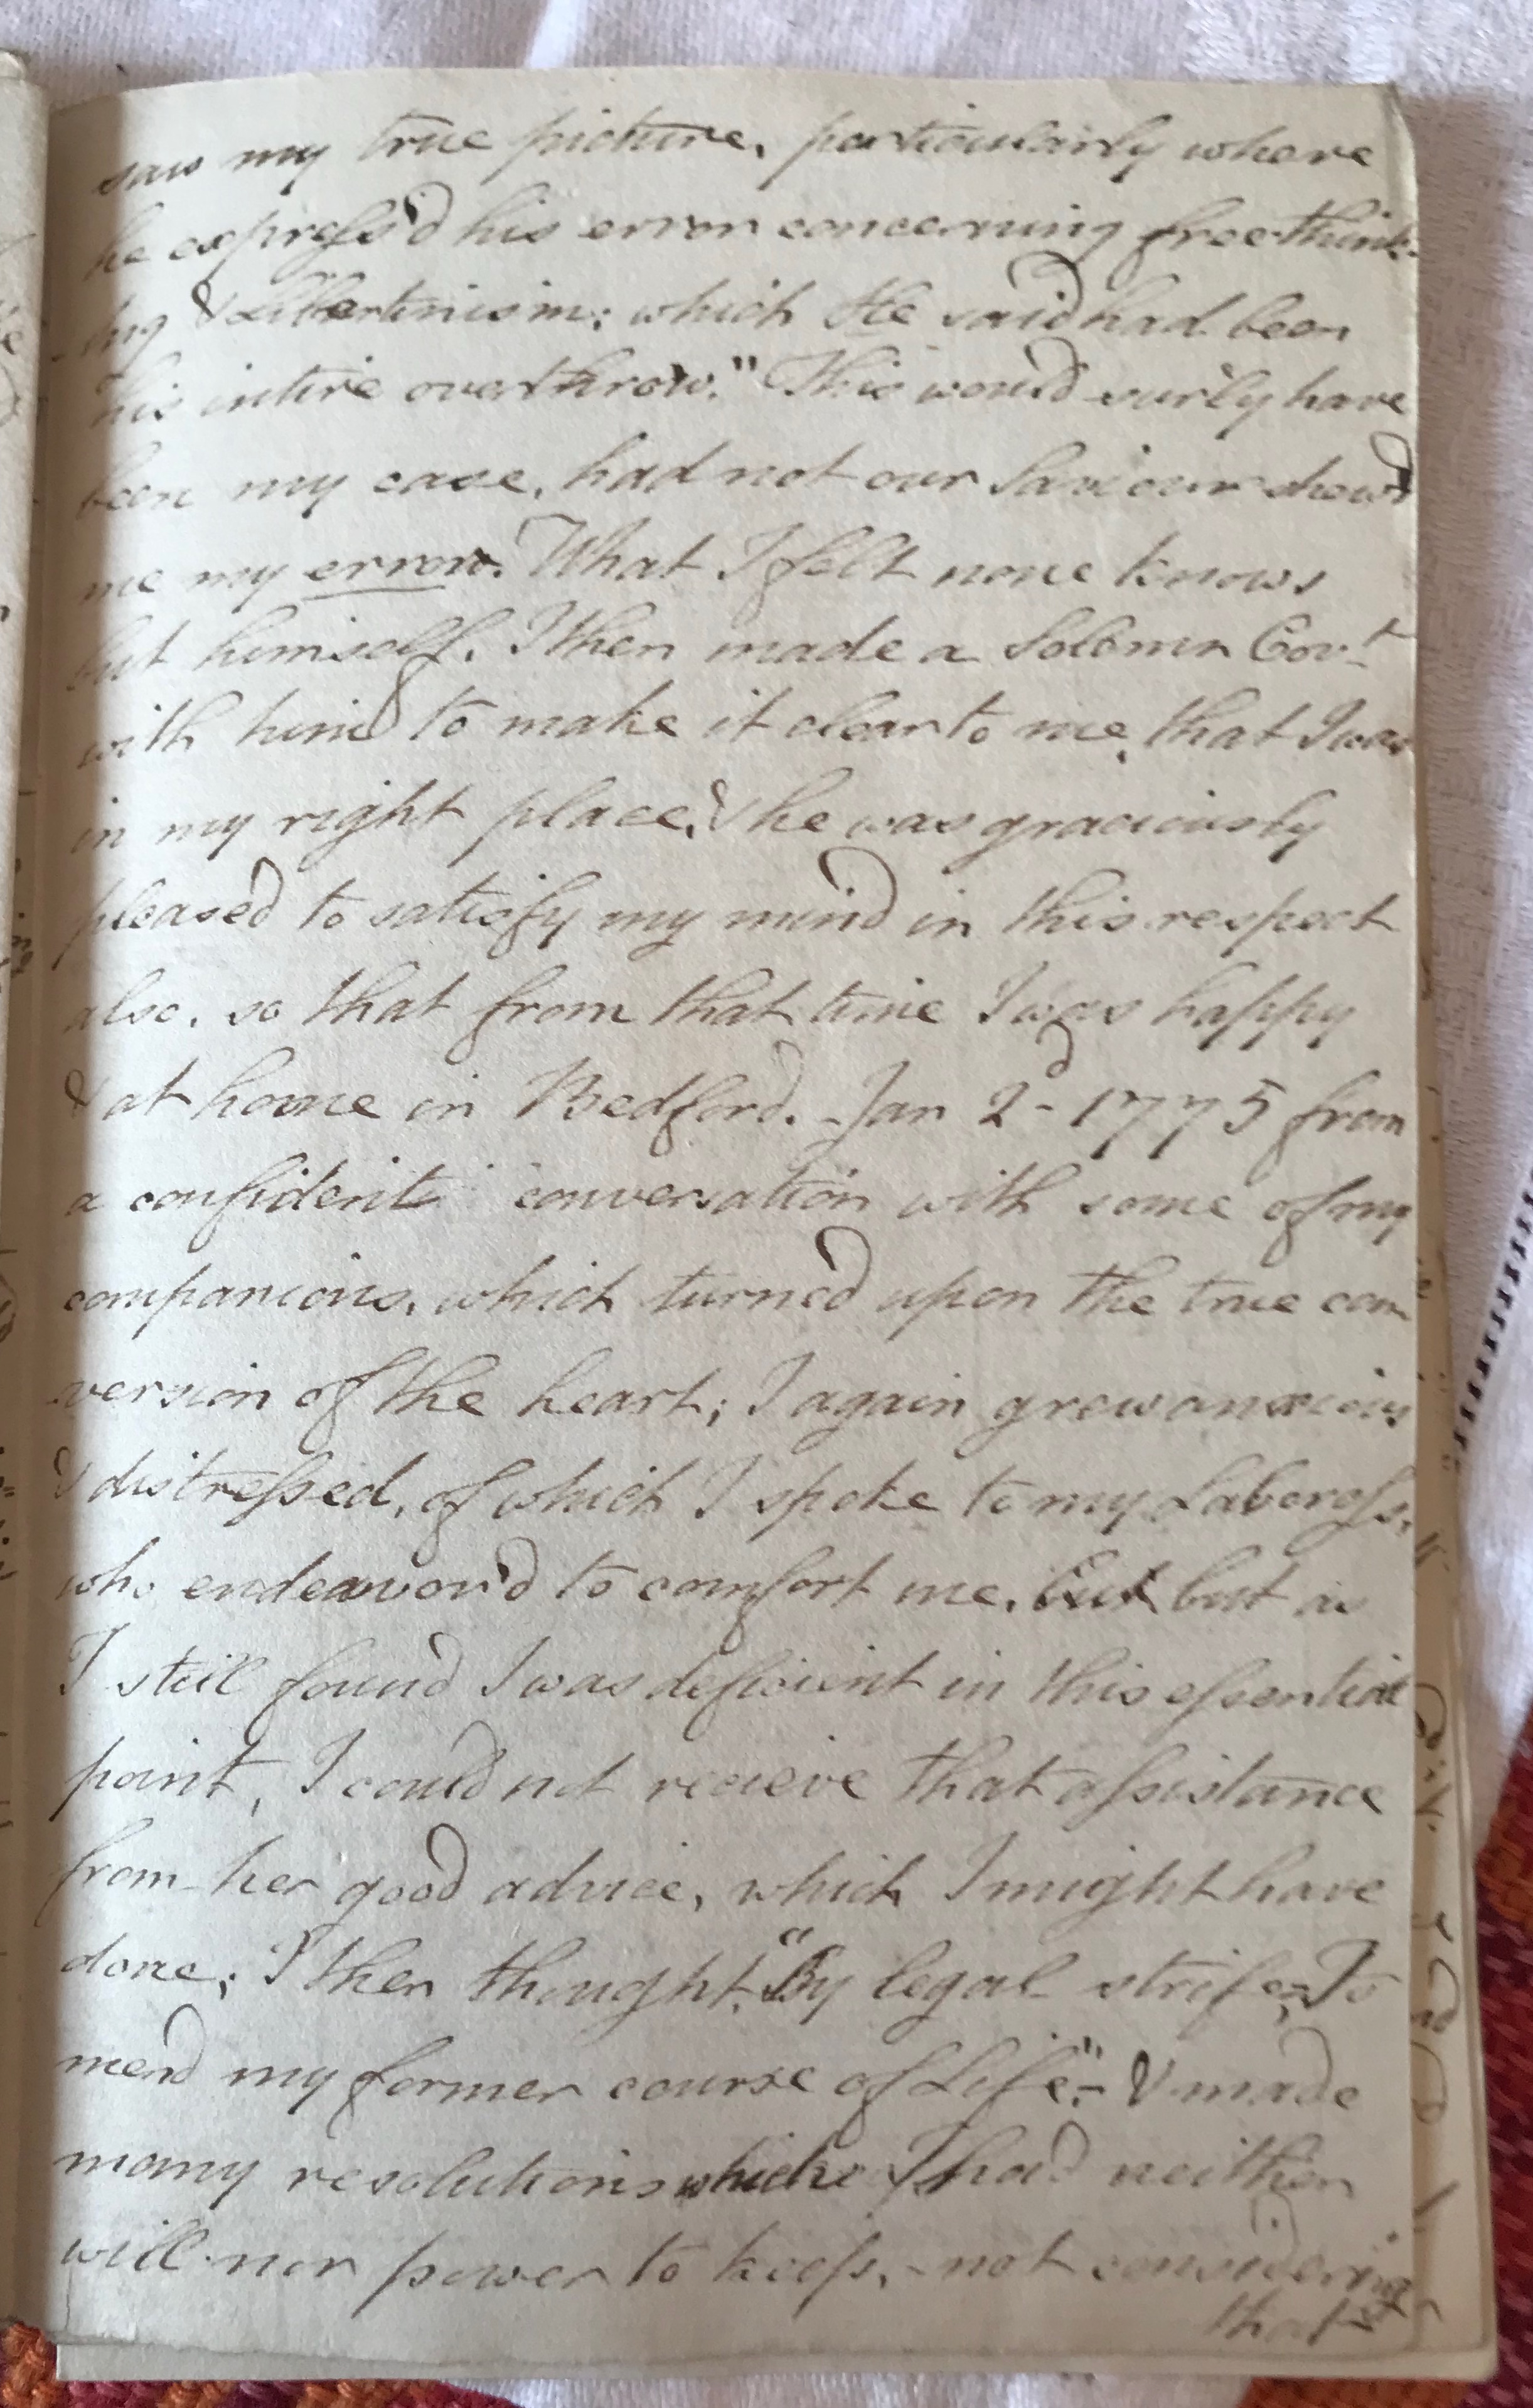 saw my true picture, particularly where
he express'd his error concerning free think-
-ing & Libertinism: which He said had been
his intire overthrow." This would surly have
been my case, had not our Saviour shew'd
me my error. What I felt none knows
but himself. I then made a Solemn Cov.t
with him to make it clear to me, that I was
in my right place, & he was graciously
pleased to satisfy my mind in this respect
also, so that from that time I was happy
& at home in Bedford. Jan 2d 1775 from
a confident conversation with some of my
companions, which turned upon the true con
version of the heart; I again grew anxious
& distressed, of which I spoke to my Laboress,
who endeavor'd to comfort me, but as
I still found I was deficient in this essential
point, I could not recieve that assistance
from her good advice, which I might have
done; I then thought, "By legal strife, To
mend my former course of Life"- & made
many resolutions which I had neither
will nor power to keep, - not considering
that